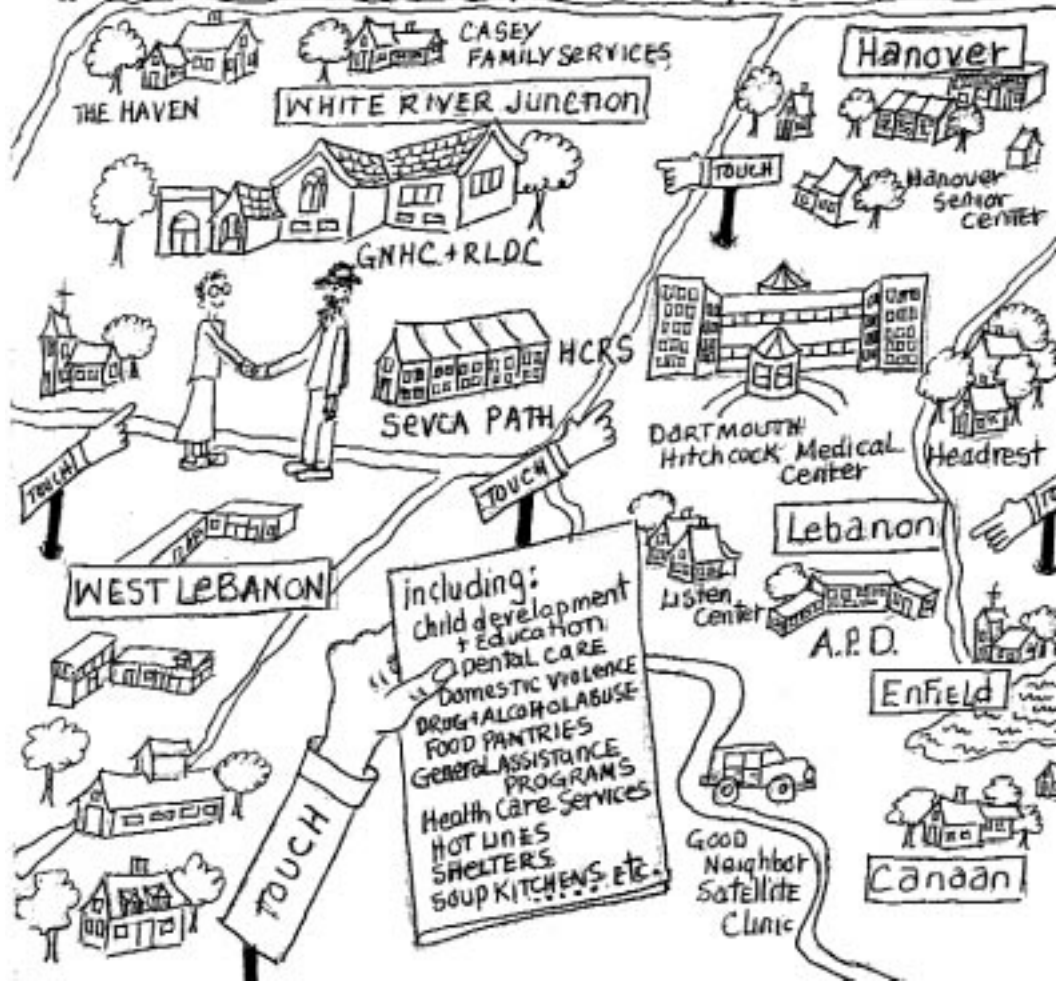 CASEY
FAMILY SERVICES
THE HAVEN
WHITE RIVER JUNCTION
Hanover
TOUCH
Hanover
Senior
Center
GNHC + RLDC
HCRS
SEVCA PATH
DARTMOUTH
Hitchcock Medical
Center
Headrest
TOUCH
TOUCH
Lebanon
WEST LEBANON
Listen
Center
A.P.D.
including:
Child development
+ Education
Dental CARE
Domestic Violence
DRUG + ALCOHOL ABUSE
FOOD PANTRIES
General ASSISTANCE
PROGRAMS
Health Care Services
HOT LINES
SHELTERS
SOUP KITCHENS. etc.
TOUCH
Enfield
GOOD
Neighbor
Satellite
Clinic
Canaan